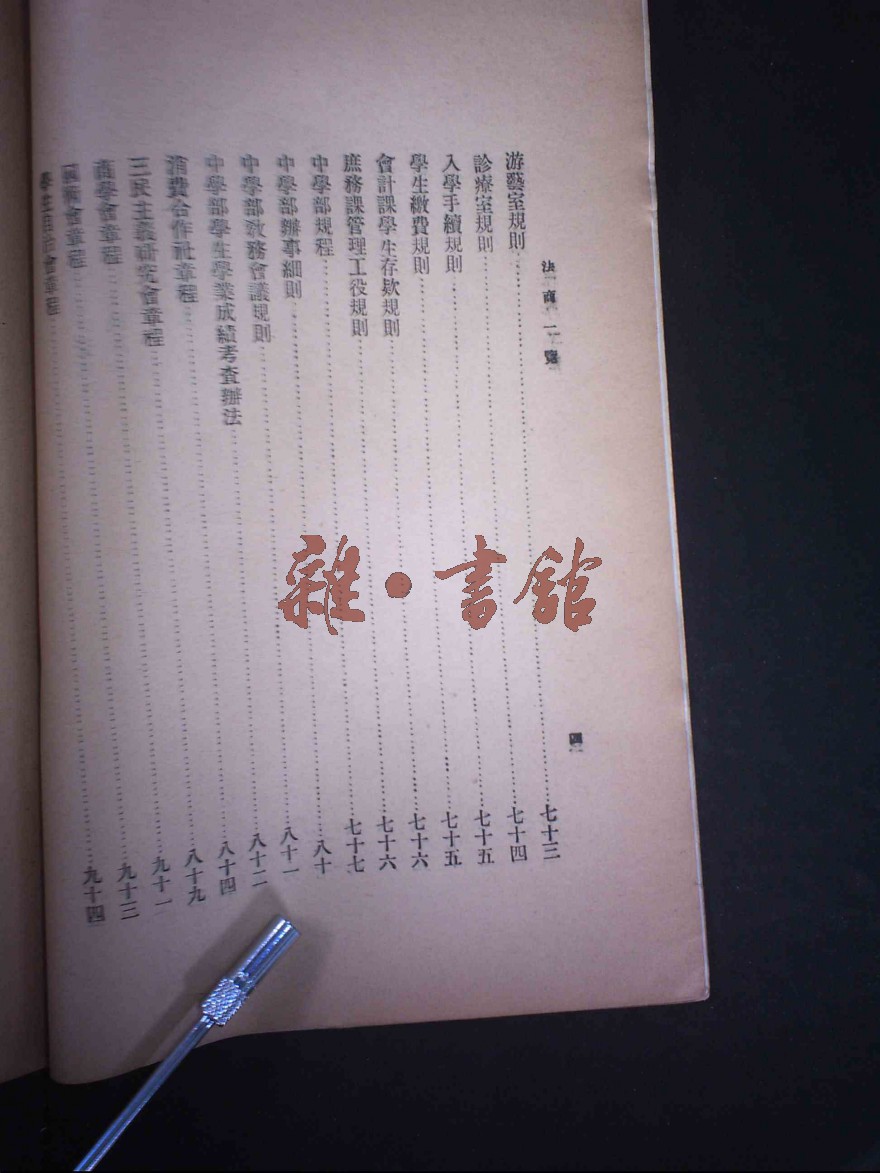 法商一覽
四
游藝室規則……七十三
診療室規則……七十四
入學手續規則……七十五
學生繳費規則……七十五
會計課學生存欵規則……七十六
庶務課管理工役規則……七十六
中學部規程……七十七
中學部辦事細則……八十
中學部教務會議規則……八十一
中學部學生學業成績考查辦法……八十二
消費合作社章程……八十四
三民主義研究會章程……八十九
商學會章程……九十一
會章程……九十三
學生自治會章程……九十四
雜·書館